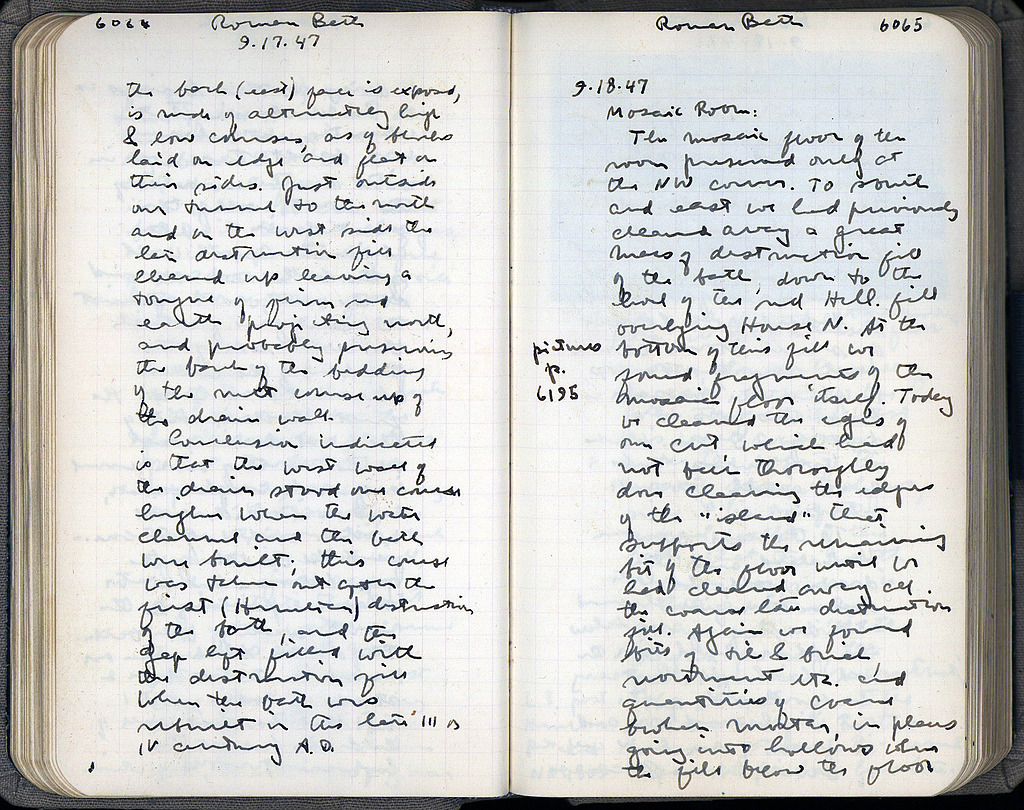 6064 Roman Bath
9.17.47
the back (east) face is exposed,
is made of alternately high
& low courses, as of blocks
laid on edge and flat on
their sides. Just outside
our tunnel to the north
and on the west side the
late destruction fill
cleared up leaving a
tongue of firm red
earth projecting north,
and probably preserving
the back of the bedding
of the next course up of
the drain wall.
Conclusion indicated
is that the west wall of
the drain stood one course
higher when the water
channel and the bath
were built; this course
was taken out after the
first (Herulian) destruction
of the bath, and the
gap left filled with
the destruction fill
when the bath was
rebuilt in the late III or
IV century A.D.
Roman Bath 6065
9.18.47
Mosaic Room:
The mosaic floor of the
room preserved only at
the NW corner. To south
and east we had previously
cleared away a great
mass of destruction fill
of the bath, down to the
level of the red Hell. fill
overlying House N. At the
bottom of this fill we
found fragments of the
mosaic floor itself. Today
we cleaned the edges of
our cut which had
not been thoroughly
done cleaning the edges
of the "island" that
supports the remaining
bit of the floor until we
had cleared away all
the coarse late destruction
fill. Again we found
bits of tile & brick,
revetment etc. and
quantities of coarse
broken mortar, in places
going into hollows when
the fill below the floor
pictures
p.
6195